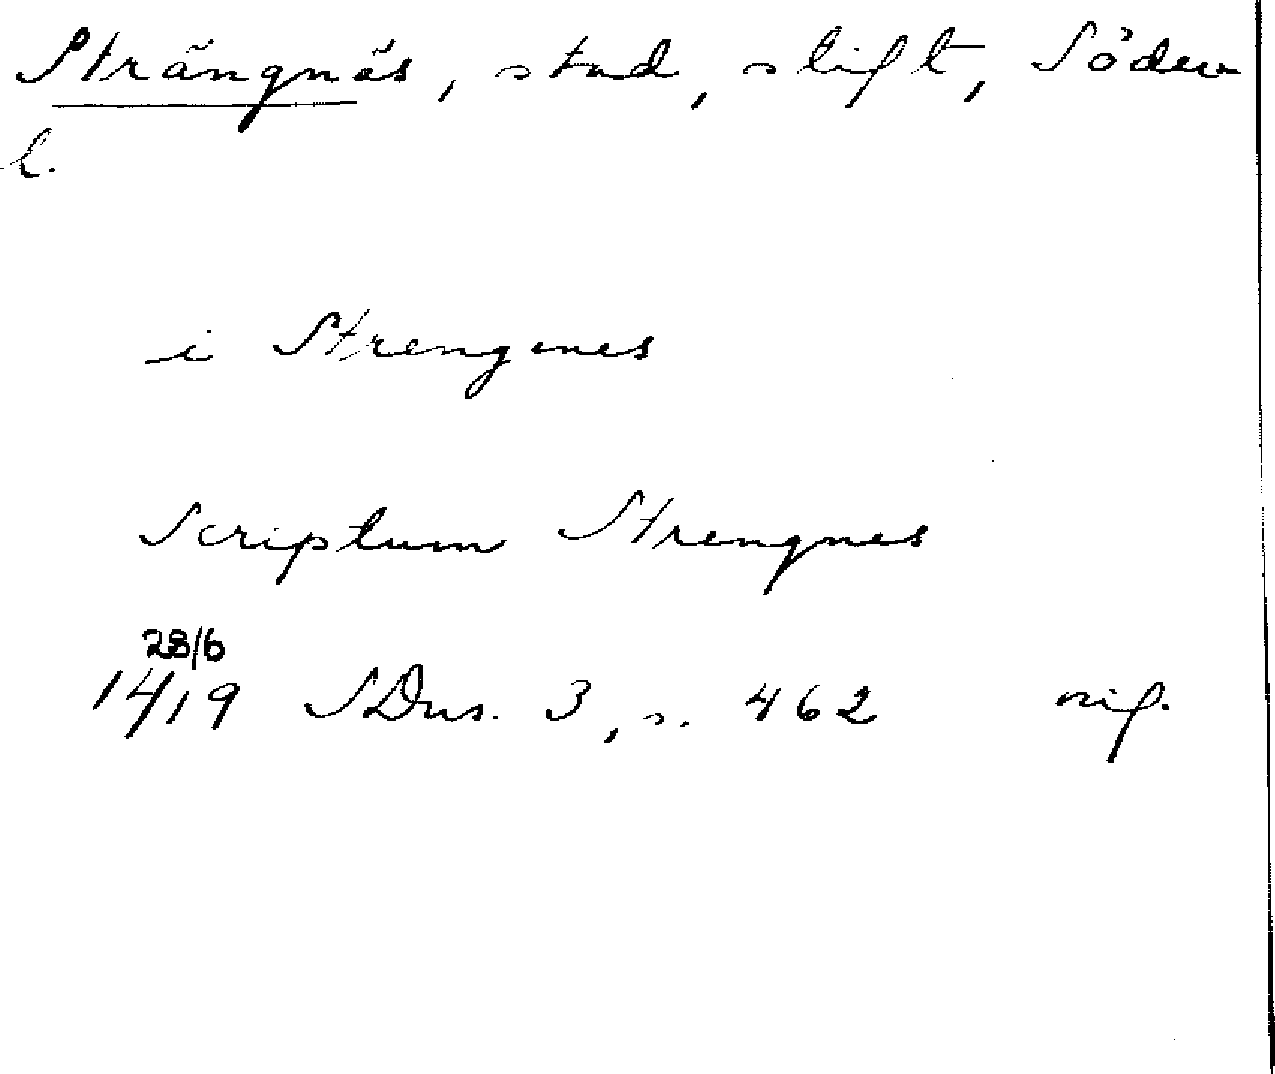 Strängnäs, stad, stift, Söderm
l.
i Strengnnes
Scriptum Strengnes
28/6
1419 SDns. 3, s. 462